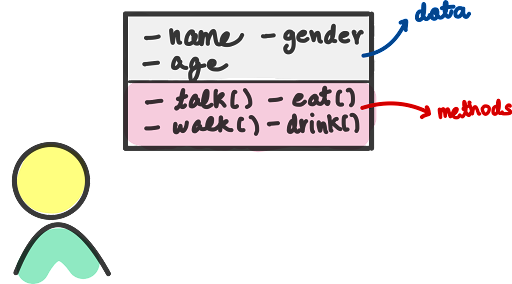 data
- name - gender
- age
- talk() - eat()
- walk() - drink()
methods